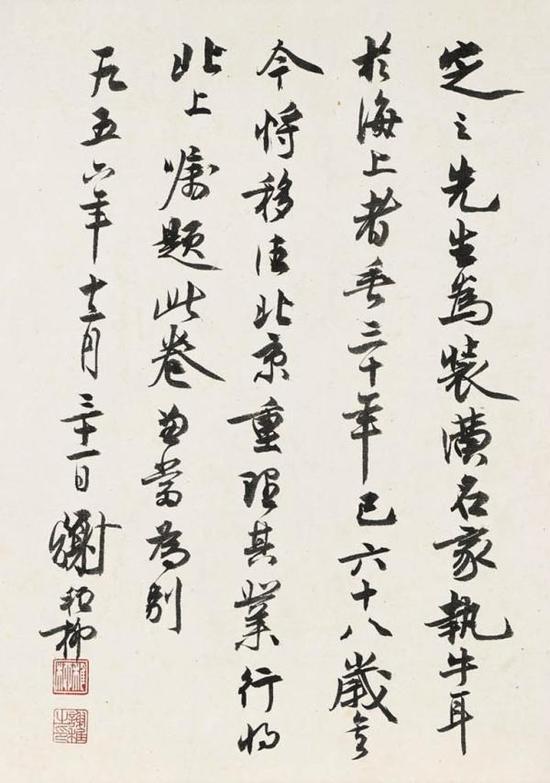 定之先生為裝潢名家執牛耳
於海上者垂三十年已六十八歲矣
今將移住北京重理其業行將
北上屬題此卷
當為別
一九五六年十二月三十一日謝稚柳